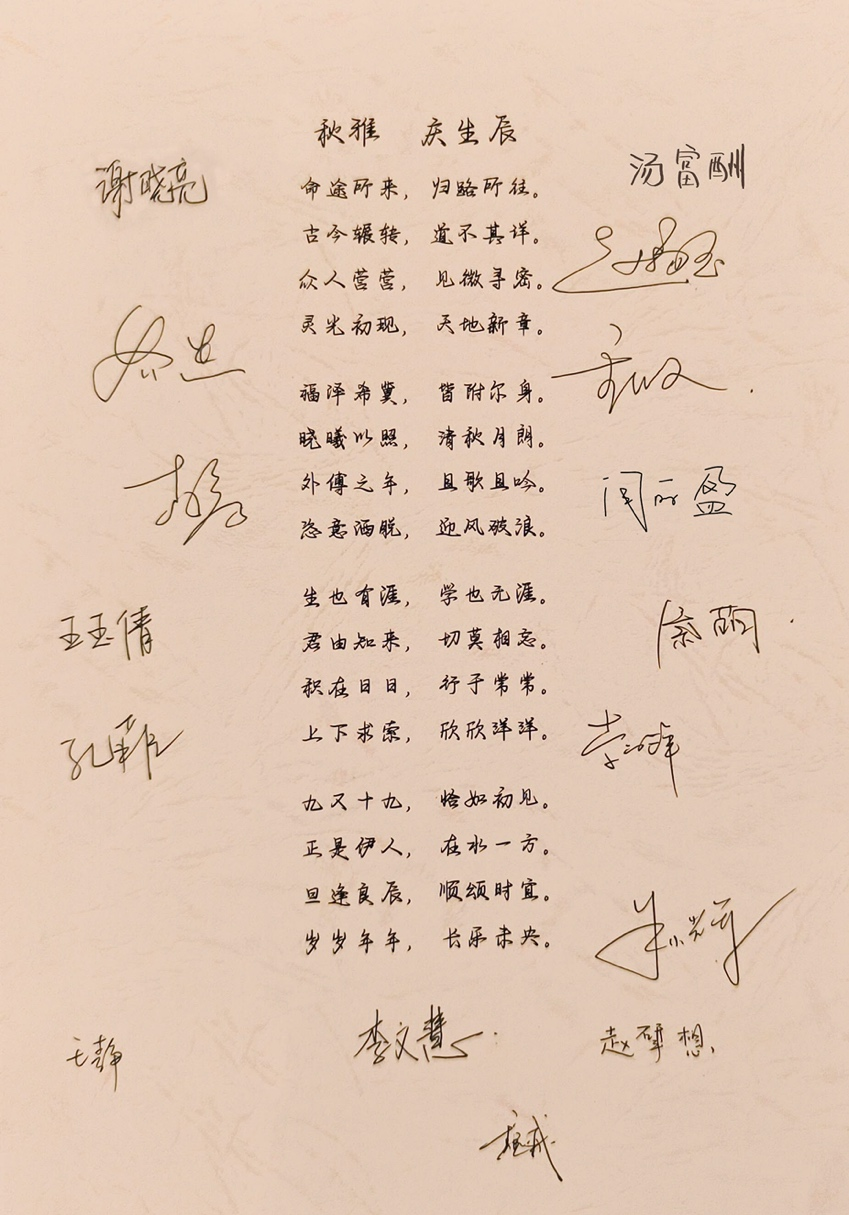 秋雅 庆生辰
命途所来，归路所往。
古今辗转，道不其详。
众人营营，见微寻密。
灵光初现，天地新章。
福泽希冀，皆附尔身。
晓曦以照，清秋月朗。
外傅之年，且歌且吟。
恣意洒脱，迎风破浪。
生也有涯，学也无涯。
君由知来，切莫相忘。
积在日日，行于常常。
上下求索，欣欣洋洋。
九又十九，恪如初见。
正是伊人，在水一方。
旦逢良辰，顺颂时宜。
岁岁年年，长乐未央。
谢晓亮
王玉倩
孔菲
王静
李文慧
汤富酬
闫丽盈
朱小辉
赵肂想